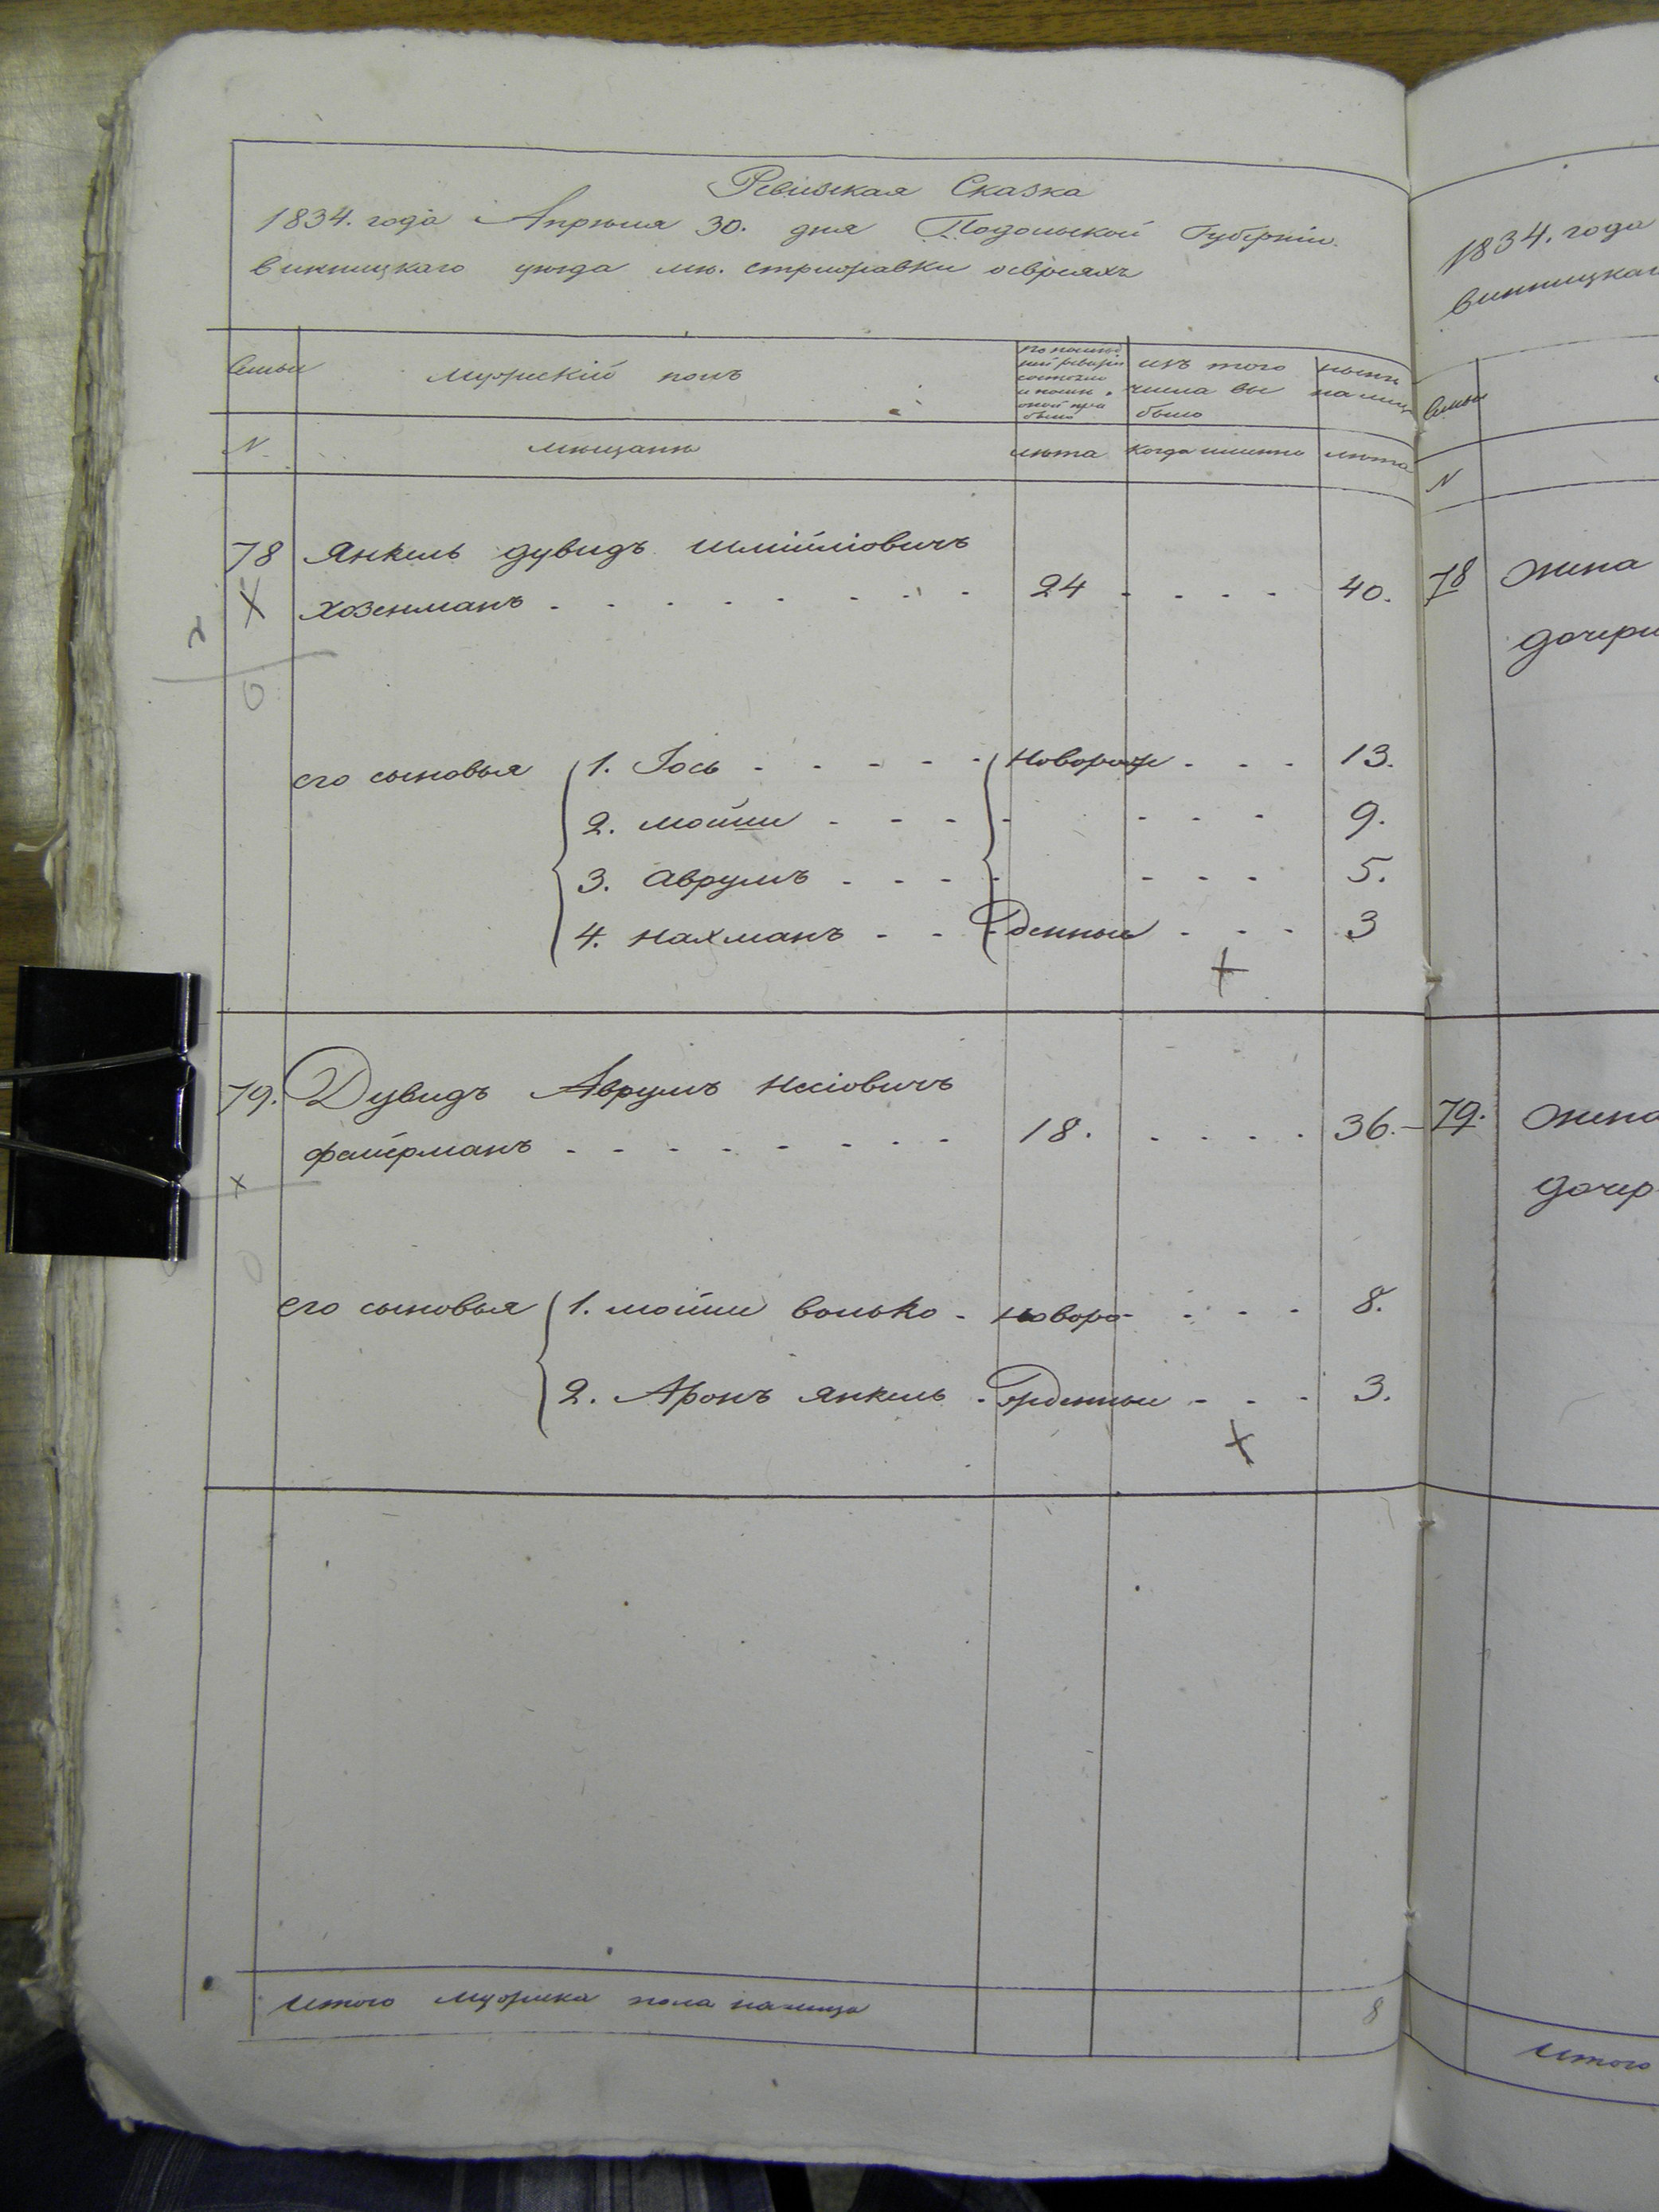 Ревизская Сказка
1834. года Апреля 30. дня Подольской Губернии
винницкаго уезда м. стрижавки о евреяхъ
Семьи
Мужескій полъ
изъ того числа выбыло
ныне на лицо
N
мещане
лета
когда именно
лета
78 Янкель дувидъ Шмійліовичъ
хозенманъ - - - 24 - - - - 40.
его сыновья 1. Іось - - - - - новорож - - - 13.
2. мошии - - - - - - - 9.
3. аврумъ - - - - - - - 5.
4. нахманъ - - - денные - - - 3
79. Дувидъ Аврумъ Нсіовичъ
файерманъ - - - 18. - - - - 36.
его сыновья 1. мошии волько - новоро - - - 8.
2. Аронъ янкель - жденные - - - 3.
Итого мужеска пола налицо 8
1834. года
винницкаго
Семьи
N
78 жена
дочери
79. жена
дочер
Итого